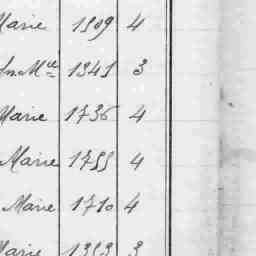 Marie 1909 4
Jn. Mie 1341 3
Marie 1736 4
Marie 1755 4
Marie 1710 4
Marie 1353 3